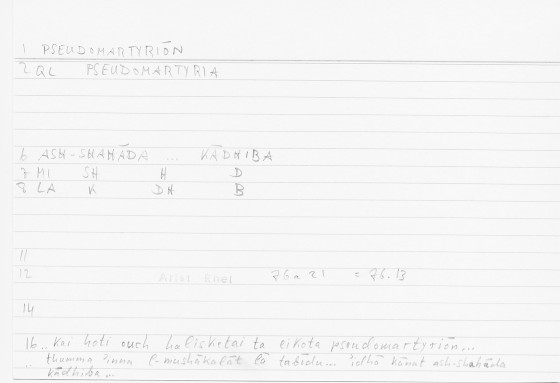 1 PSEUDOMARTYRIŌN
2 QL PSEUDOMARTYRIA
6 ASH-SHAHĀDA ... KĀDHIBA
7 MI SH H D
8 LA K DH B
11
12 Arist Rhet 76a 21 = 76.13
14
16 .. kai hoti ouch halisketai ta eikota pseudomartyriōn...
.. thumma 'inna l-mushākalāt lā tabīdu... 'idhā kānat ash-shahāda
kādhiba...